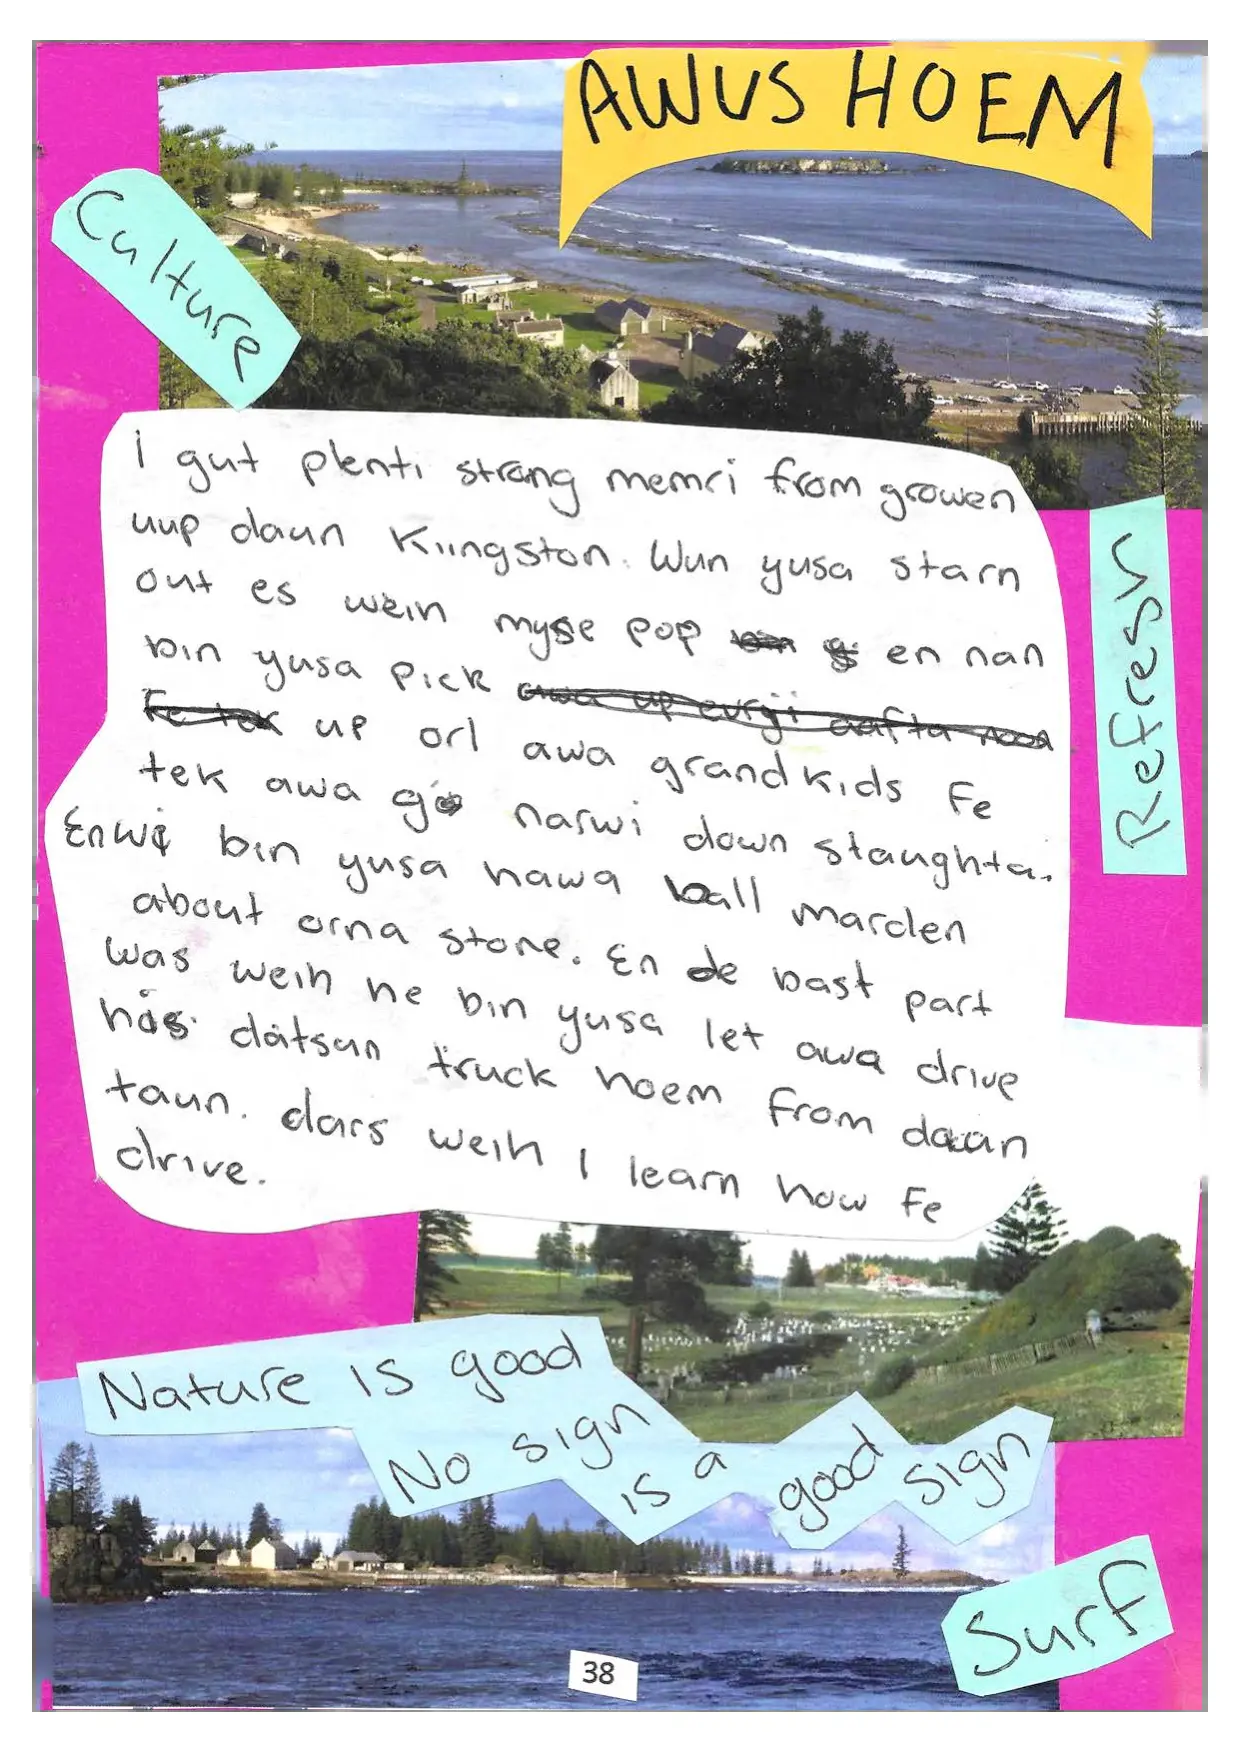 AWUS HOEM
Culture
i gut plenti strong memri from growen
uup daun Kiingston. Wun yusa starn
out es wein myse pop en nan
bin yusa pick
up orl awa grandkids fe
tek awa go narwi down slaughta.
Enwi bin yusa hawa ball marden
about orna stone. En de bast part
was weih he bin yusa let awa drive
his datsun truck hoem from daun
taun. dars weih I learn how fe
drive.
Refresh
Nature is good
No sign
is a good sign
Surf
38